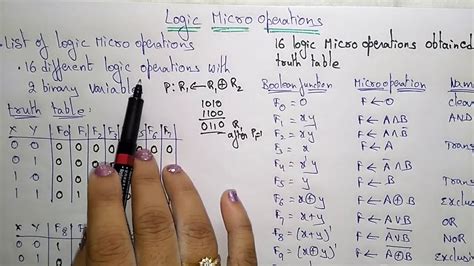 Logic Micro operations
• List of logic Micro operations
• 16 different logic operations with
2 binary
P: R₁←R₁⊕R₂
1010
1100
0110 R₁
after P=1
truth table:
X Y F₀ F₁ F₂ F₃ F₆ F₇
0 0 0 0 0 0 0
0 1 0 0 0
1 0 0 0
1 1 0 1
X Y F₈
16 logic Micro operations obtained
truth table
Boolean function Microoperation Na
F₀ = 0 F←0 clea
F₁ = xy F←A∧B AND
F₂ = xy' F←A∧B̅
F₃ = x F←A Trans
F₄ = x'y F←A̅∧B
F₅ = y F←B Trans
F₆ = x⊕y F←A⊕B Exclus
F₇ = x+y F←A∨B OR
F₈ = (x+y)' F←A̅∨̅B̅ NOR
F₉ = (x⊕y)' F←A̅⊕̅B̅ Exclus